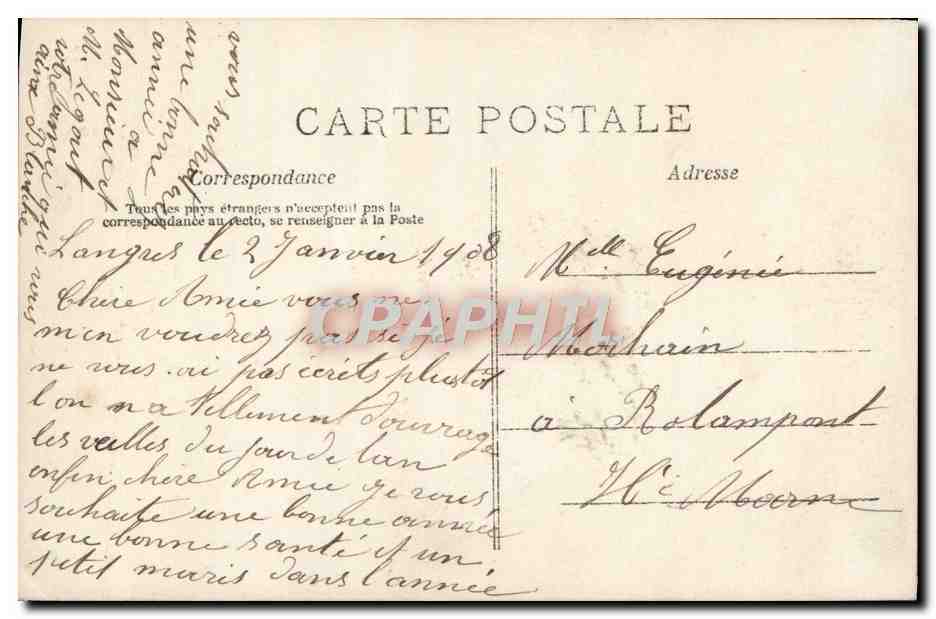 CARTE POSTALE
Correspondance
Tous les pays étrangers n'acceptent pas la
correspondance au recto, se renseigner à la Poste
Adresse
Langres le 2 Janvier 1908
Chère Amie vous ne
m'en voudrez pas si je
ne vous ai pas écrits plustôt
l'on n'a tellement d'ouvrage
les veilles du jour de lan
enfin chère Amie je vous
souhaite une bonne année
une bonne santé et un
petit maris dans l'année
vous souhait
une bonne
année
a
Monsieur et
M. Legout
votre amie qui vous
aime Blanche
Mlle Eugénie
Morhain
à Rolampont
Hte Marne
CPAPHIL